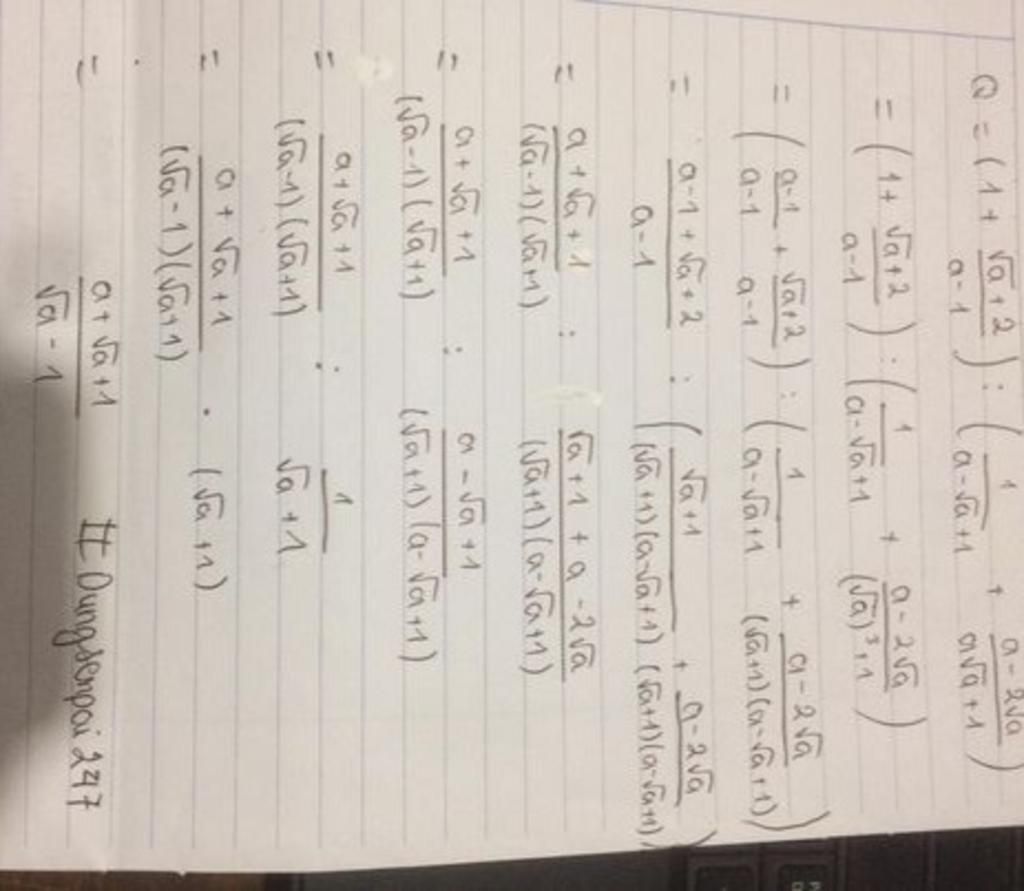 Q = (1 + \frac{√a+2}{a-1}) : (\frac{1}{a-√a+1} + \frac{a-2√a}{a√a+1})
= (1 + \frac{√a+2}{a-1}) : (\frac{1}{a-√a+1} + \frac{a-2√a}{(√a)³+1})
= (\frac{a-1}{a-1} + \frac{√a+2}{a-1}) : (\frac{1}{a-√a+1} + \frac{a-2√a}{(√a+1)(a-√a+1)})
= \frac{a-1+√a+2}{a-1} : (\frac{√a+1}{(√a+1)(a-√a+1)} + \frac{a-2√a}{(√a+1)(a-√a+1)})
= \frac{a+√a+1}{(√a-1)(√a+1)} : \frac{√a+1+a-2√a}{(√a+1)(a-√a+1)}
= \frac{a+√a+1}{(√a-1)(√a+1)} : \frac{a-√a+1}{(√a+1)(a-√a+1)}
= \frac{a+√a+1}{(√a-1)(√a+1)} : \frac{1}{√a+1}
= \frac{a+√a+1}{(√a-1)(√a+1)} . (√a+1)
= \frac{a+√a+1}{√a-1} # Dungsenpai 247